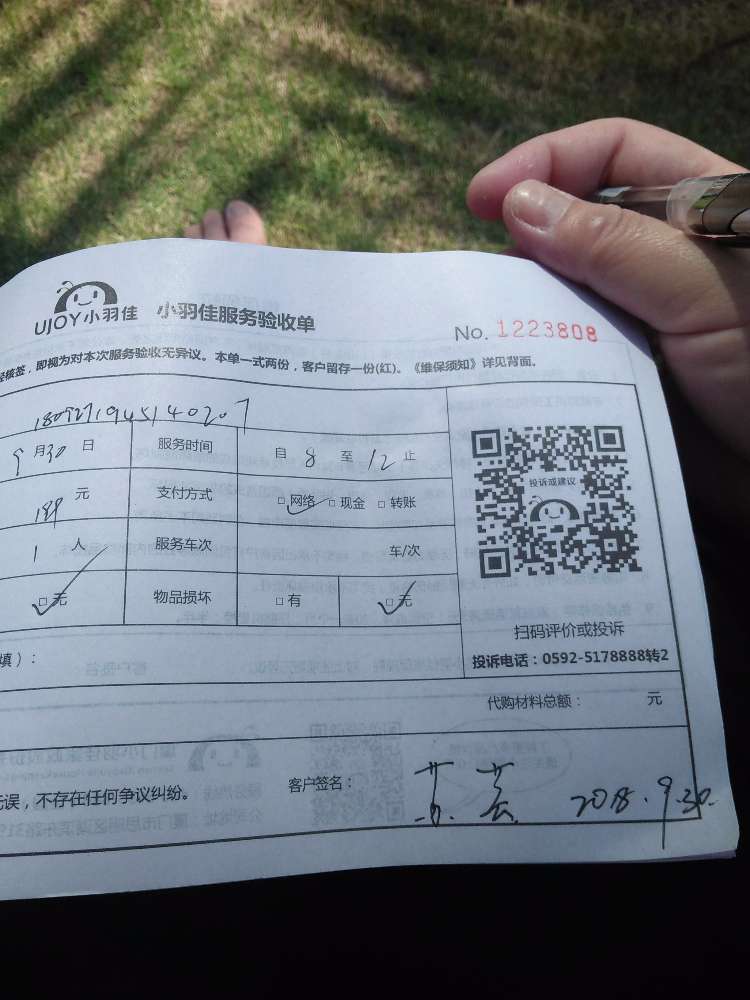 UJOY小羽佳 小羽佳服务验收单
No. 1223808
经核签，即视为对本次服务验收无异议。本单一式两份，客户留存一份(红)。《维保须知》详见背面。
9月30日 服务时间 自 8 至 12 止
元 支付方式 □网络 □现金 □转账
1 人 服务车次 车/次
□无 物品损坏 □有 □无
投诉或建议
扫码评价或投诉
投诉电话：0592-5178888转2
填）：
代购材料总额： 元
无误，不存在任何争议纠纷。 客户签名： 2018.9.30.